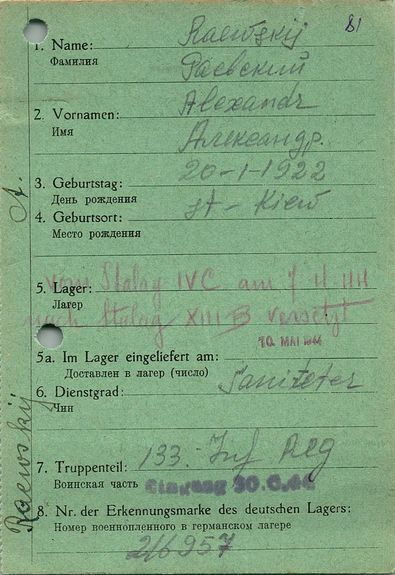 81
Raewskij
1. Name:
Фамилия
Раевский
Alexandr
2. Vornamen:
Имя
Александр.
20-1-1922
3. Geburtstag:
День рождения
st - Kiew
4. Geburtsort:
Место рождения
vom Stalag IVC am 7.
5. Lager:
Лагер
nach Stalag XIII B versetzt
10. MAI 1944
5a. Im Lager eingeliefert am:
Доставлен в лагер (число)
Saniteter
6. Dienstgrad:
Чин
133. Inf Reg
7. Truppenteil:
Воинская часть
Eingang 30.6.44
8. Nr. der Erkennungsmarke des deutschen Lagers:
Номер военнопленного в германском лагере
216957
Raewskij A.